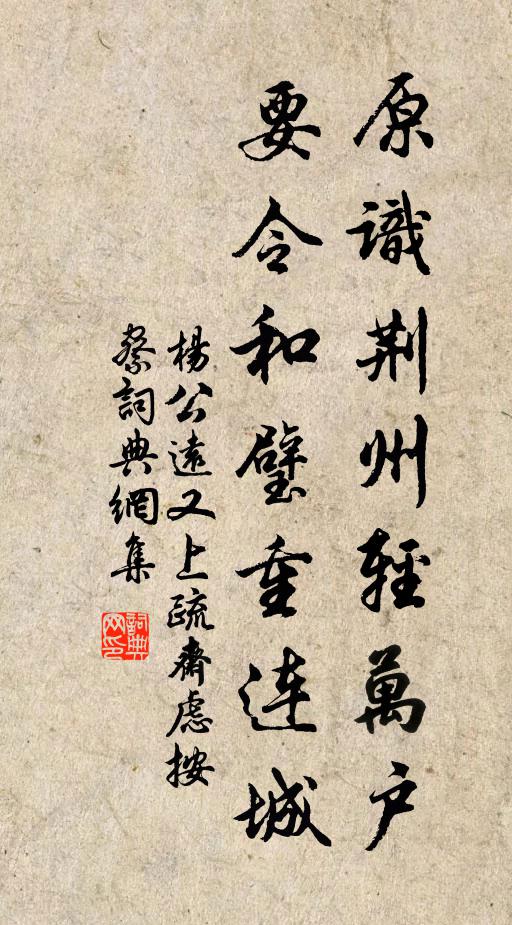 原識荆州輕萬户
要令和璧重連城
楊公遠又上疏齋慮按
察詞典網集
詞典
网印